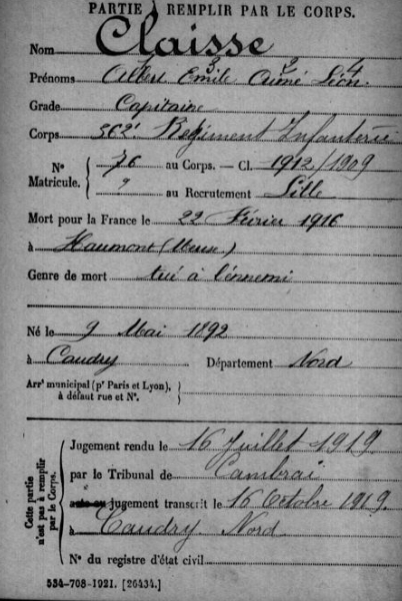 PARTIE À REMPLIR PAR LE CORPS.
Nom Claisse
3 2 4
Prénoms Albert Emile Aimé Léon.
Grade Capitaine
Corps 362e Régiment Infanterie
N° Matricule. { 76 au Corps. — Cl. 1912/1909
? au Recrutement Lille
Mort pour la France le 22 Février 1916
à Haumont (Meuse)
Genre de mort tué à l'ennemi
Né le 9 Mai 1892
à Caudry Département Nord
Arrt municipal (pr Paris et Lyon),
à défaut rue et N°.
Cette partie n'est pas à remplir par le Corps.
Jugement rendu le 16 Juillet 1919
par le Tribunal de Cambrai
acte ou jugement transcrit le 16 Octobre 1919.
à Caudry Nord
N° du registre d'état civil
534-708-1921. [26434.]